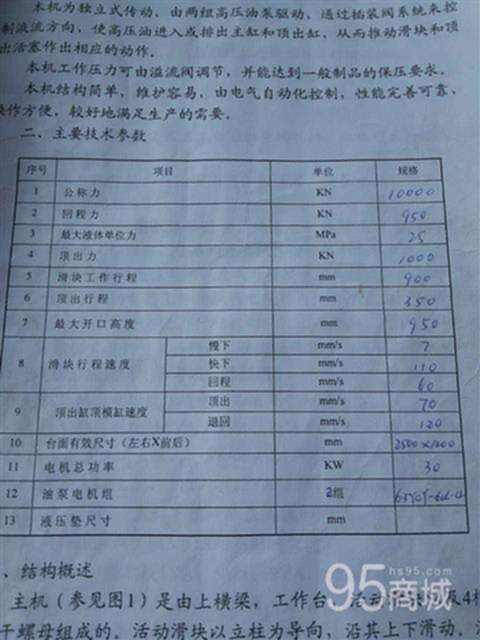 本机为独立式传动，由两组高压油泵驱动，通过插装阀系统来控
制液流方向，使高压油进入或排出主缸和顶出缸，从而推动滑块和顶
出活塞作出相应的动作。
本机工作压力可由溢流阀调节，并能达到一般制品的保压要求。
本机结构简单，维护容易，由电气自动化控制，性能完善可靠，
操作方便，较好地满足生产的需要。
二、主要技术参数
序号 项目 单位 规格
1 公称力 KN 10000
2 回程力 KN 950
3 最大液体单位力 MPa 25
4 顶出力 KN 1000
5 滑块工作行程 mm 900
6 顶出行程 mm 350
7 最大开口高度 mm 950
8 滑块行程速度 慢下 mm/s 7
快下 mm/s 110
回程 mm/s 60
9 顶出缸顶模缸速度 顶出 mm/s 70
退回 mm/s 120
10 台面有效尺寸（左右X前后） mm 2500×
11 电机总功率 KW 30
12 油泵电机组 2组
13 液压垫尺寸 mm
、结构概述
主机（参见图1）是由上横梁，工作台，活动 及4根
干螺母组成的。活动滑块以立柱为导向，沿其上下滑动，
95商城
hs95.com